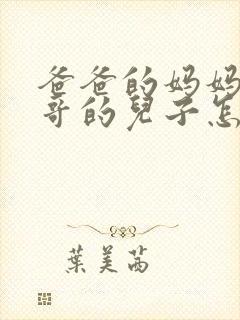 爸爸的妈妈
哥的兒子怎
葉美茜